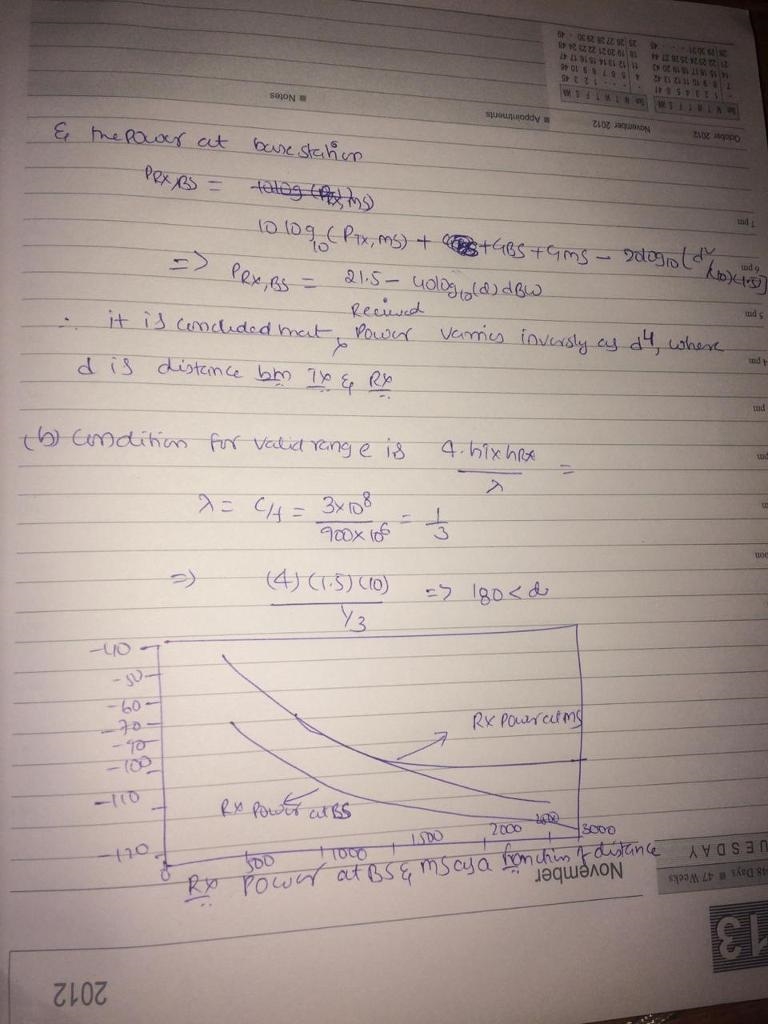 & the Power at base station
PRX,BS = 10log (PTX,MS)
10 log10 (PTX,MS) + GBS + GMS - 20log10 (d²/(10)(1.5))
=> PRX,BS = 21.5 - 40log10(d) dBW
Received
∴ it is concluded that Power varries inversly as d⁴, where
d is distance b/n Tx & Rx
(b) Condition for valid range is 4.hTx hRx / λ =
λ = c/f = 3×10⁸ / 900×10⁶ = 1/3
=> (4)(1.5)(10) / 1/3 => 180 < d
-40
-50
-60
-70
-90
-100
-110
-120
RX Power at MS
RX Power at BS
0 500 1000 1500 2000 2500 3000
RX Power at BS & MS as a function of distance
October 2012
November 2012
Appointments
Notes
7 pm
6 pm
5 pm
4 pm
pm
pm
48 Days 47 Weeks
UESDAY
13
November
2012